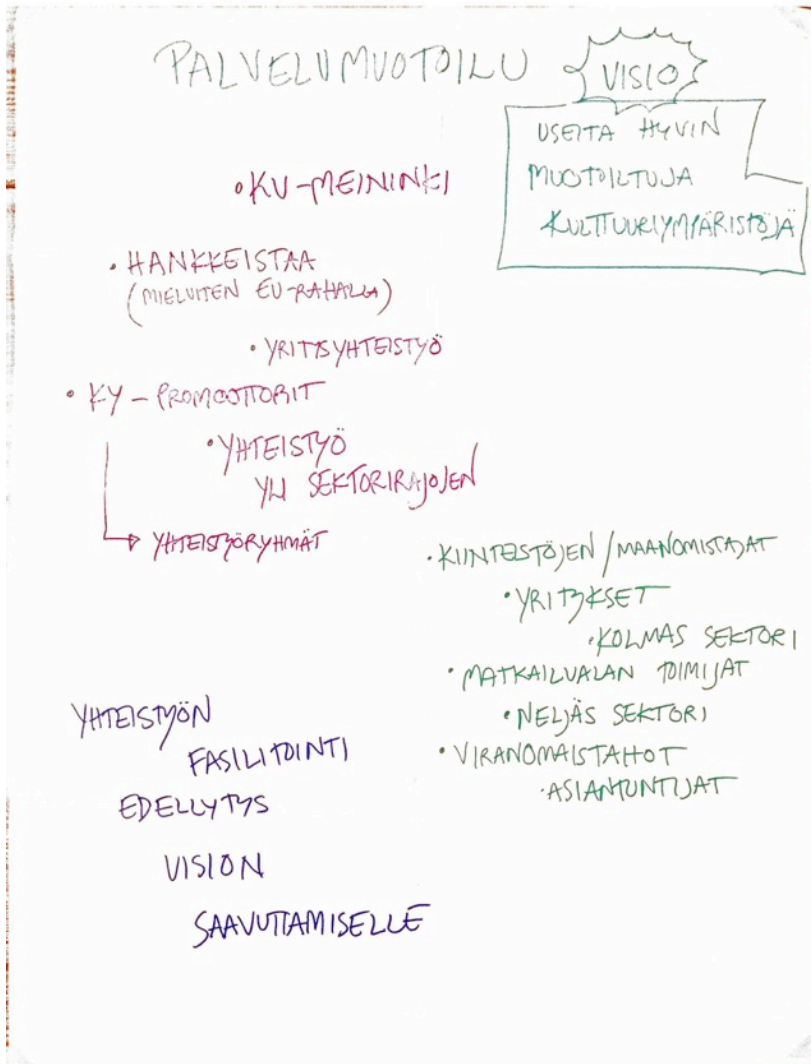 PALVELUMUOTOILU
VISIO
USEITA HYVIN
MUOTOILTUJA
KULTTUURIYMPÄRISTÖJÄ
• KV-MEININKI
• HANKKEISTAA
(MIELUITEN EU-RAHALLA)
• YRITYSYHTEISTYÖ
• KY – PROMOOTTORIT
• YHTEISTYÖ
YLI SEKTORIRAJOJEN
→ YHTEISTYÖRYHMÄT
• KIINTEISTÖJEN / MAANOMISTAJAT
• YRITYKSET
• KOLMAS SEKTORI
• MATKAILUALAN TOIMIJAT
• NELJÄS SEKTORI
• VIRANOMAISTAHOT
• ASIANTUNTIJAT
YHTEISTYÖN
FASILITOINTI
EDELLYTYS
VISION
SAAVUTTAMISELLE